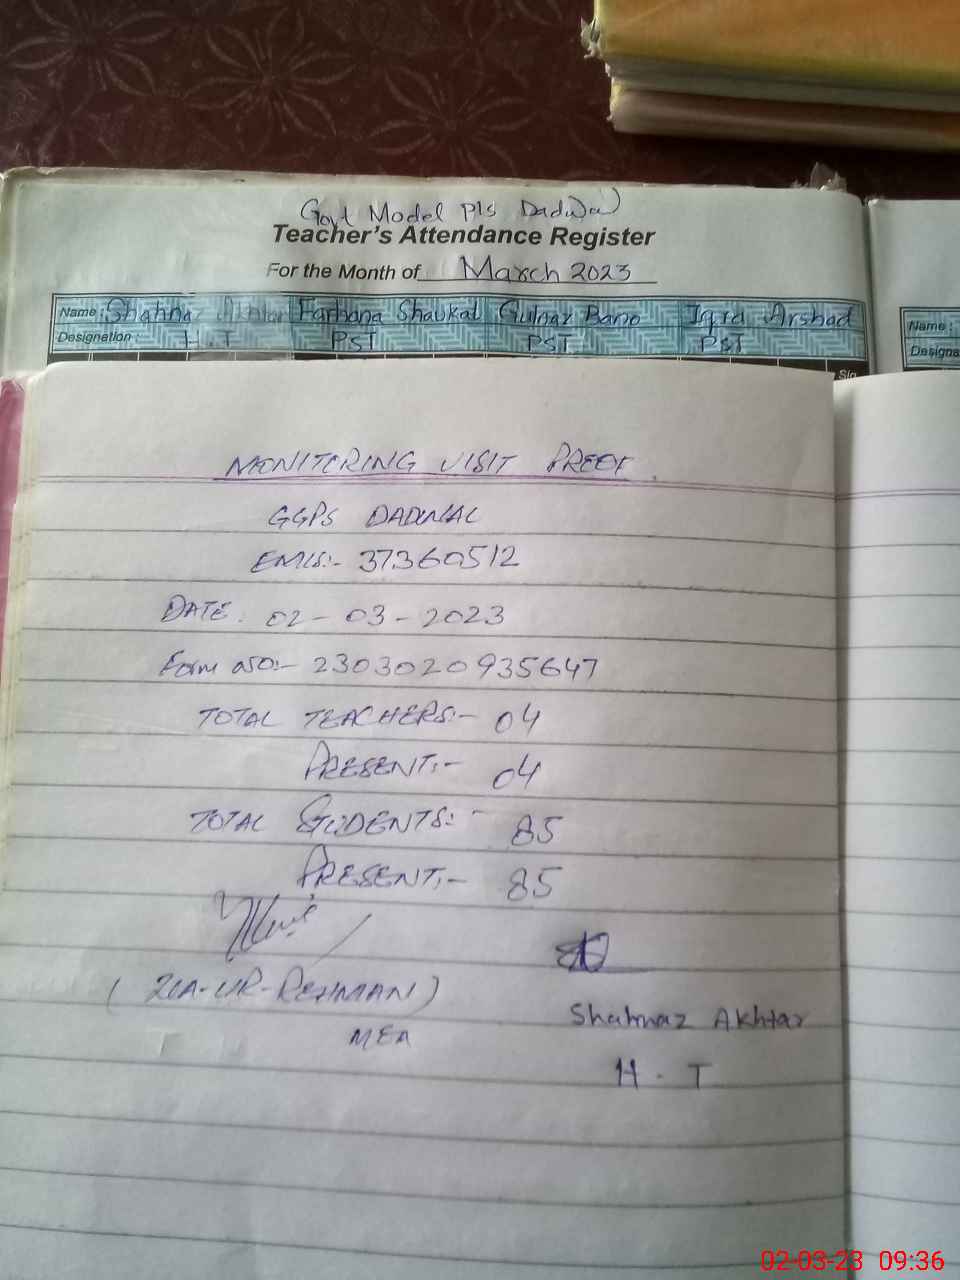 Govt Model P/S Dadwal
Teacher's Attendance Register
For the Month of March 2023
Name: Shahnaz Akhtar Farhana Shaukat Gulnaz Bano Iqra Arshad
Designation: H T PST PST PST
Name:
Designa
Sig
MONITORING VISIT PROOF
GGPS DADWAL
EMIS:- 37360512
DATE. 02-03-2023
Form no:- 2303020935647
TOTAL TEACHERS:- 04
PRESENT:- 04
TOTAL STUDENTS:- 85
PRESENT:- 85
(ZIA-UR-REHMAN)
MEA
Shahnaz Akhtar
H.T
02-03-23 09:36